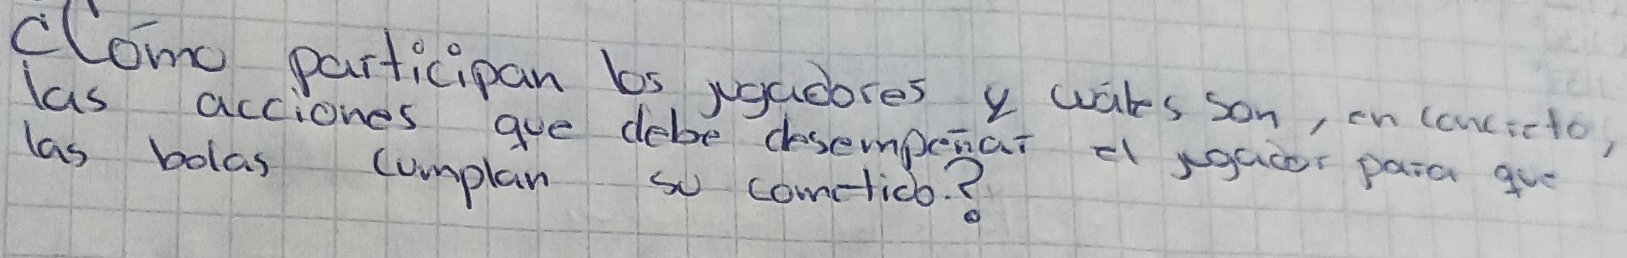 ¿Cómo participan los jugadores y cuáles son, en concreto,
las acciones que debe desempeñar el jugador para que
las bolas cumplan su cometido?